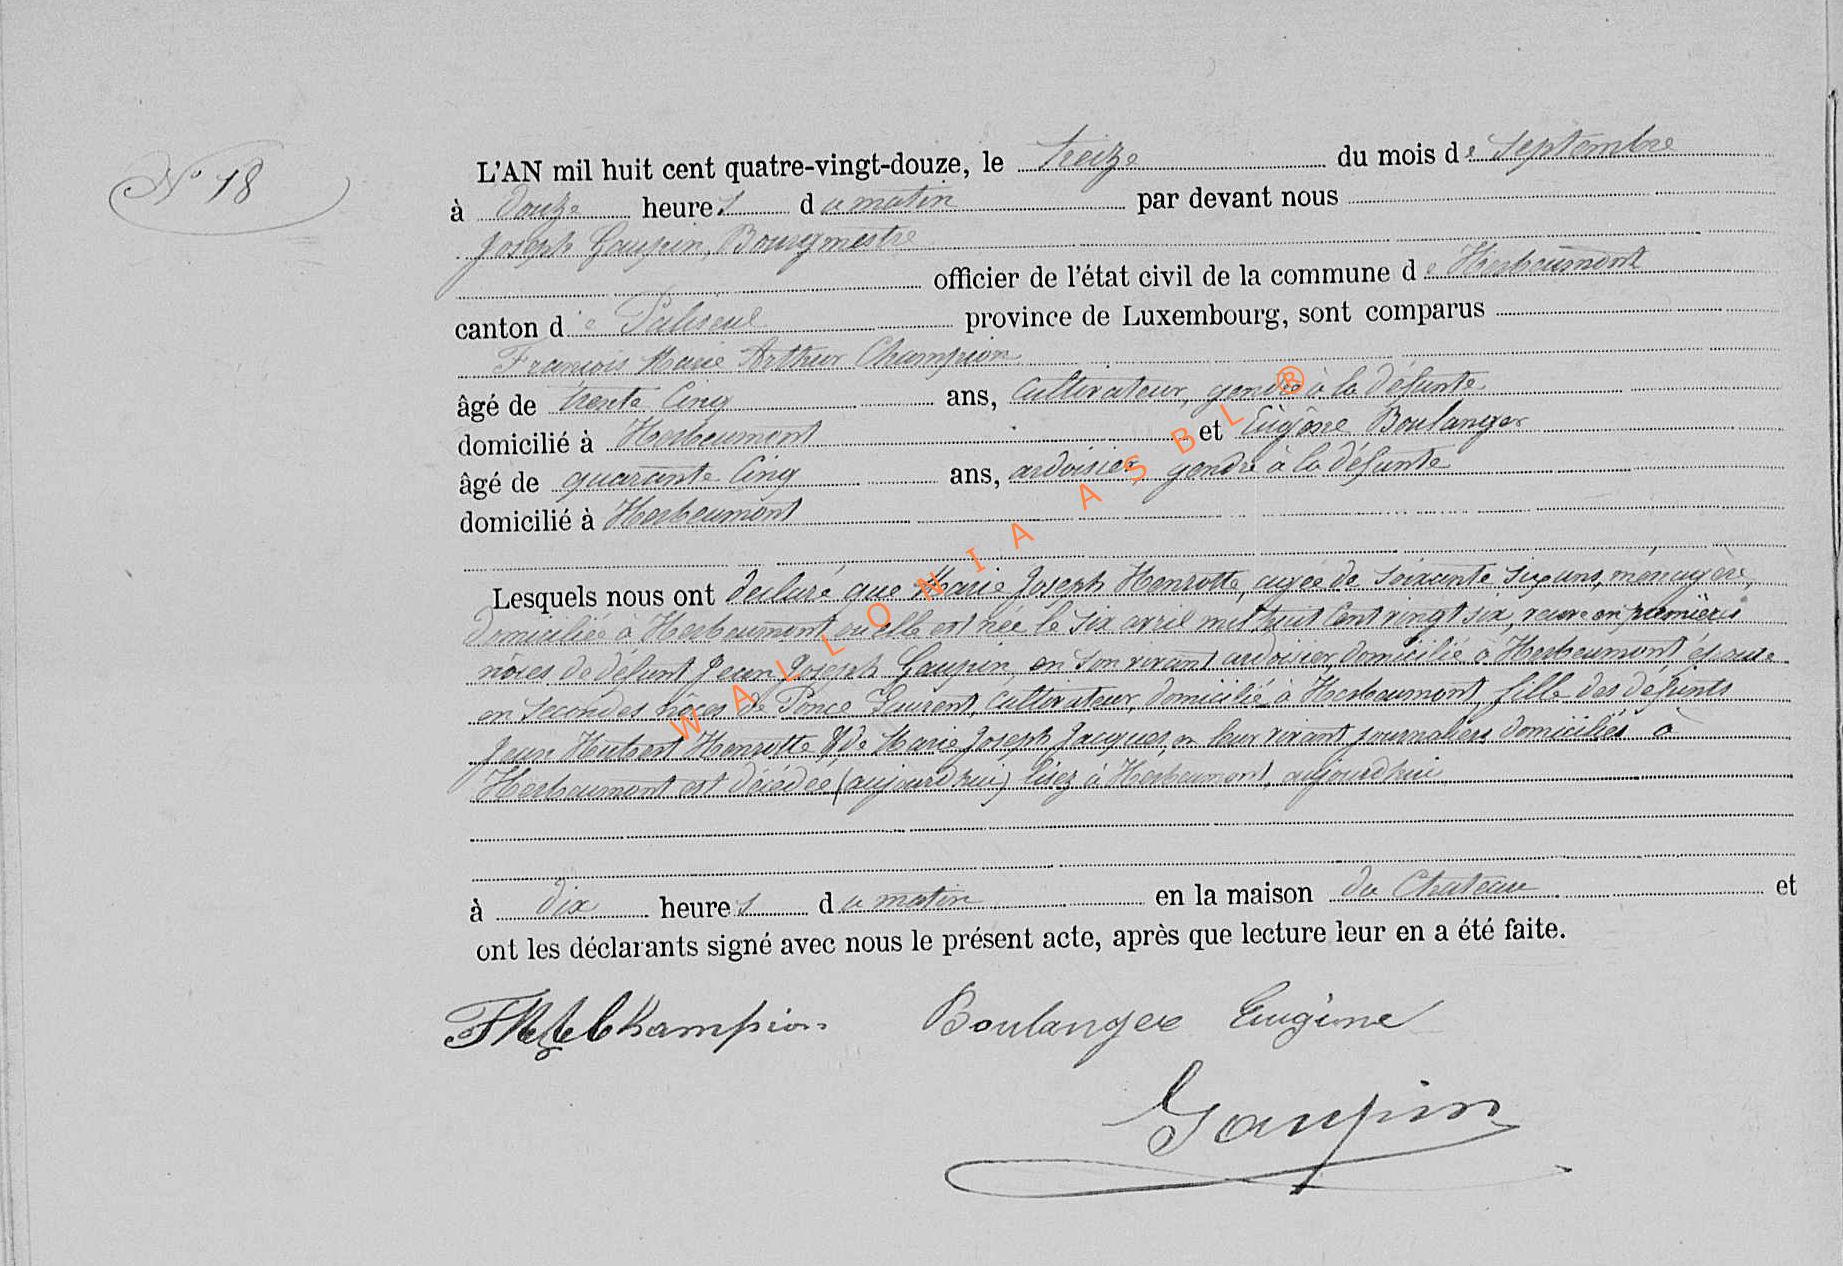 N° 18
L'AN mil huit cent quatre-vingt-douze, le treize du mois de Septembre
à douze heures du matin par devant nous
Joseph Gaupin, Bourgmestre
officier de l'état civil de la commune de Herbeumont
canton de Paliseul province de Luxembourg, sont comparus
François Marie Arthur Champion
âgé de trente cinq ans, cultivateur, gendre à la défunte
domicilié à Herbeumont et Eugène Boulanger
âgé de quarante cinq ans, ardoisier gendre à la défunte
domicilié à Herbeumont
Lesquels nous ont declaré que Marie Joseph Henrotte, agée de soixante six ans, ménagère,
domiciliée à Herbeumont où elle est née le six avril mil huit cent vingt six, veuve en premières
nôces de défunt Jean Joseph Gaupin, en son vivant ardoisier, domicilié à Herbeumont épouse
en secondes nôces de Ponce Laurent, cultivateur, domicilié à Herbeumont, fille des défunts
Jean Hubert Henrotte & de Marie Joseph Jacques, en leur vivant journaliers domiciliés à
Herbeumont est décédée (aujourd'hui) lisez à Herbeumont, aujourd'hui
à dix heures du matin en la maison du Chateau et
ont les déclarants signé avec nous le présent acte, après que lecture leur en a été faite.
Champion Boulanger Eugène
Gaupin
WALLONIA ASBL ®